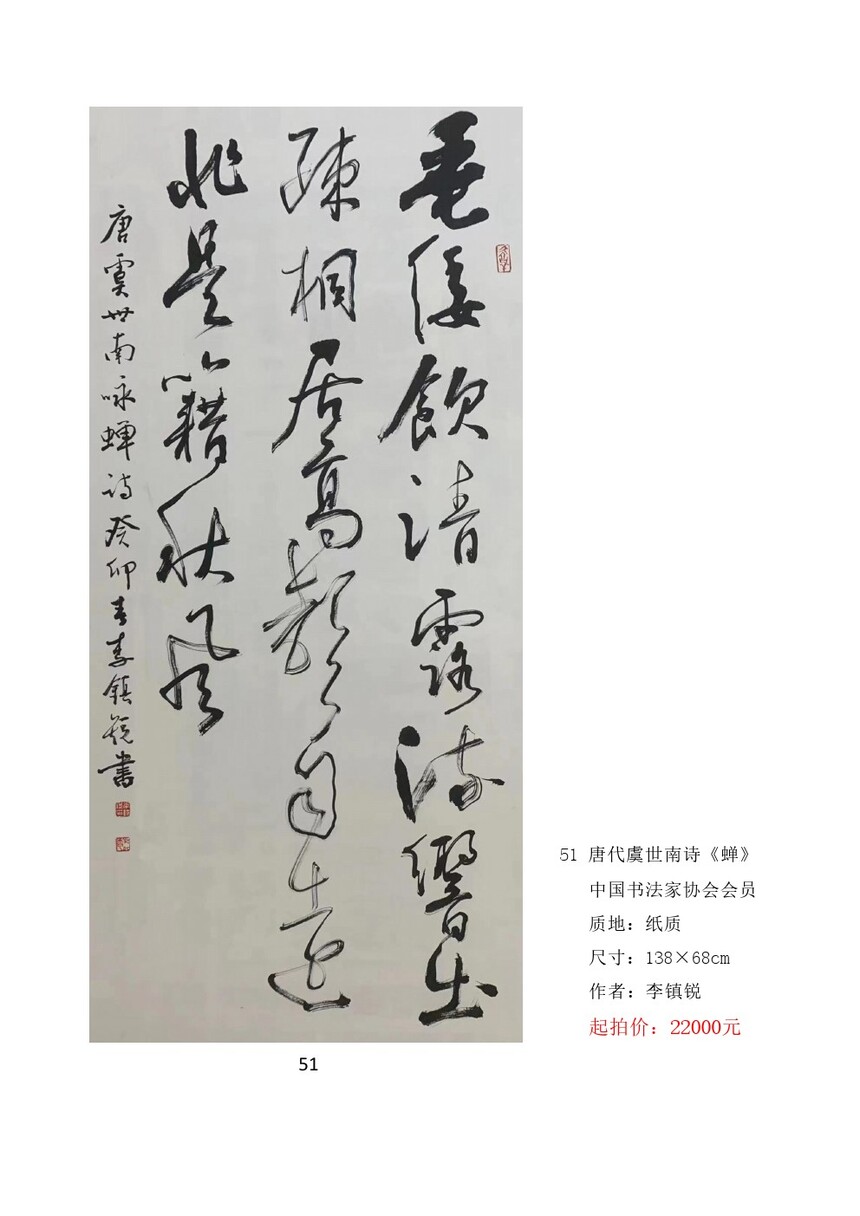 垂緌飲清露流響出
疎桐居高聲自遠
非是籍秋風
唐虞世南咏蝉诗癸卯春李鎮锐書
51
51 唐代虞世南诗《蝉》
中国书法家协会会员
质地：纸质
尺寸：138×68cm
作者：李镇锐
起拍价：22000元